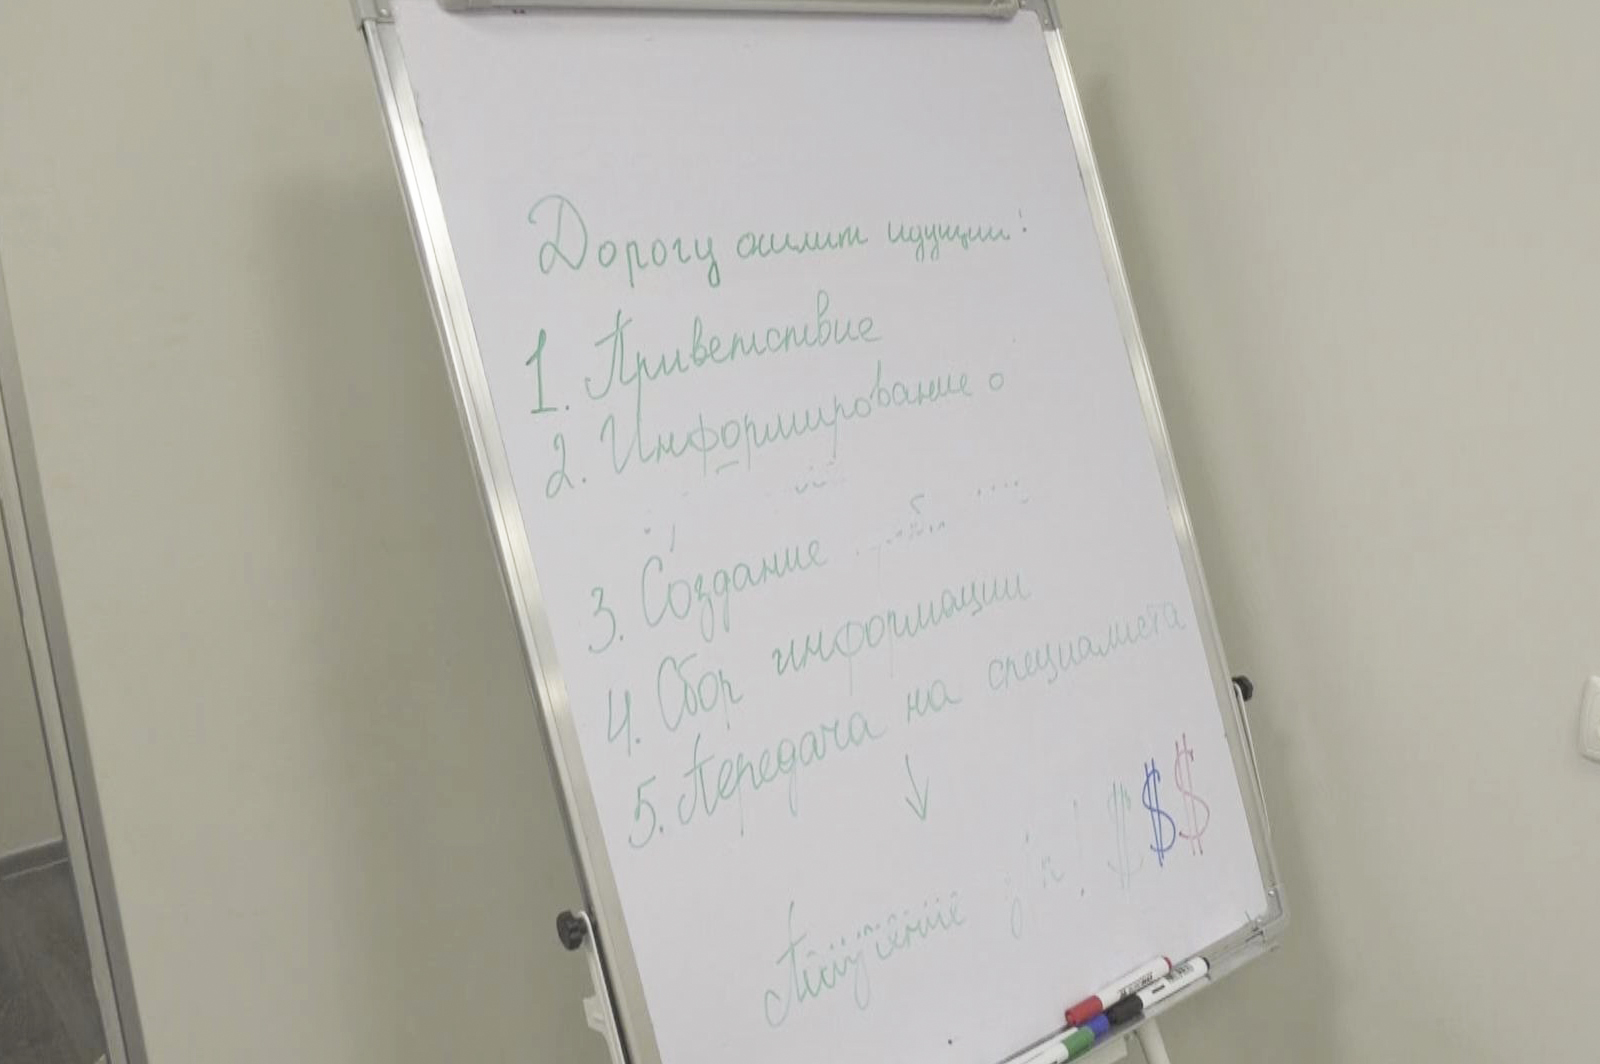 Дорогу осилит идущий!
1. Приветствие
2. Информирование о
3. Создание
4. Сбор информации
5. Передача на специалиста
↓
Получение $ $ $